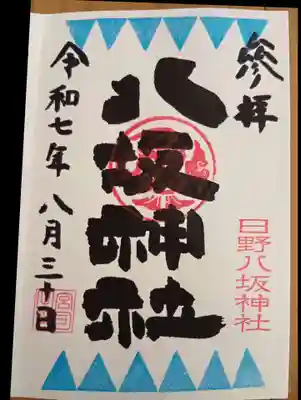 参拝
八坂神社
日野八坂神社
令和七年八月三十日